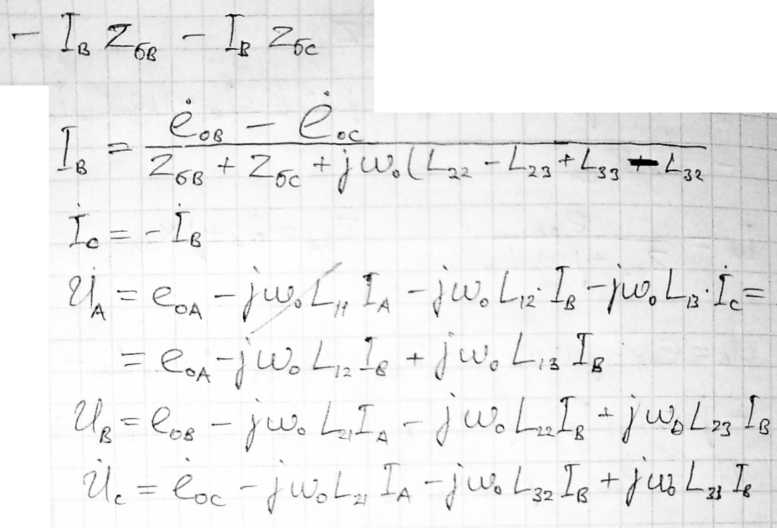 - I_B Z_бB - I_B Z_бC
I_B = (ė_0B - ė_0C) / (Z_бB + Z_бC + jω_0(L_22 - L_23 + L_33 - L_32
İ_C = - İ_B
U̇_A = e_0A - jω_0 L_11 I_A - jω_0 L_12 · I_B - jω_0 L_13 · İ_C =
= e_0A - jω_0 L_12 I_B + jω_0 L_13 I_B
U_B = e_0B - jω_0 L_21 I_A - jω_0 L_22 I_B + jω_0 L_23 I_B
U̇_C = ė_0C - jω_0 L_21 I_A - jω_0 L_32 I_B + jω_0 L_33 I_B